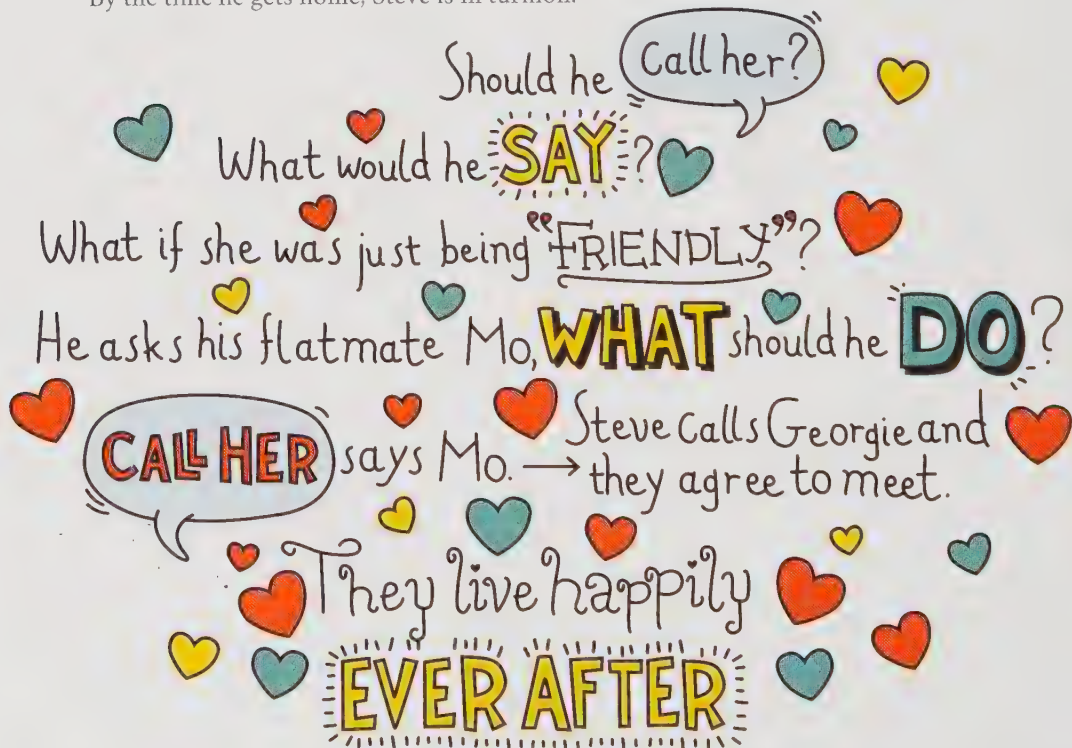 By the time he gets home, Steve is in turmoil.
Should he Call her?
What would he SAY?
What if she was just being "FRIENDLY"?
He asks his flatmate Mo, WHAT should he DO?
CALL HER says Mo. → Steve calls Georgie and
they agree to meet.
They live happily
EVER AFTER